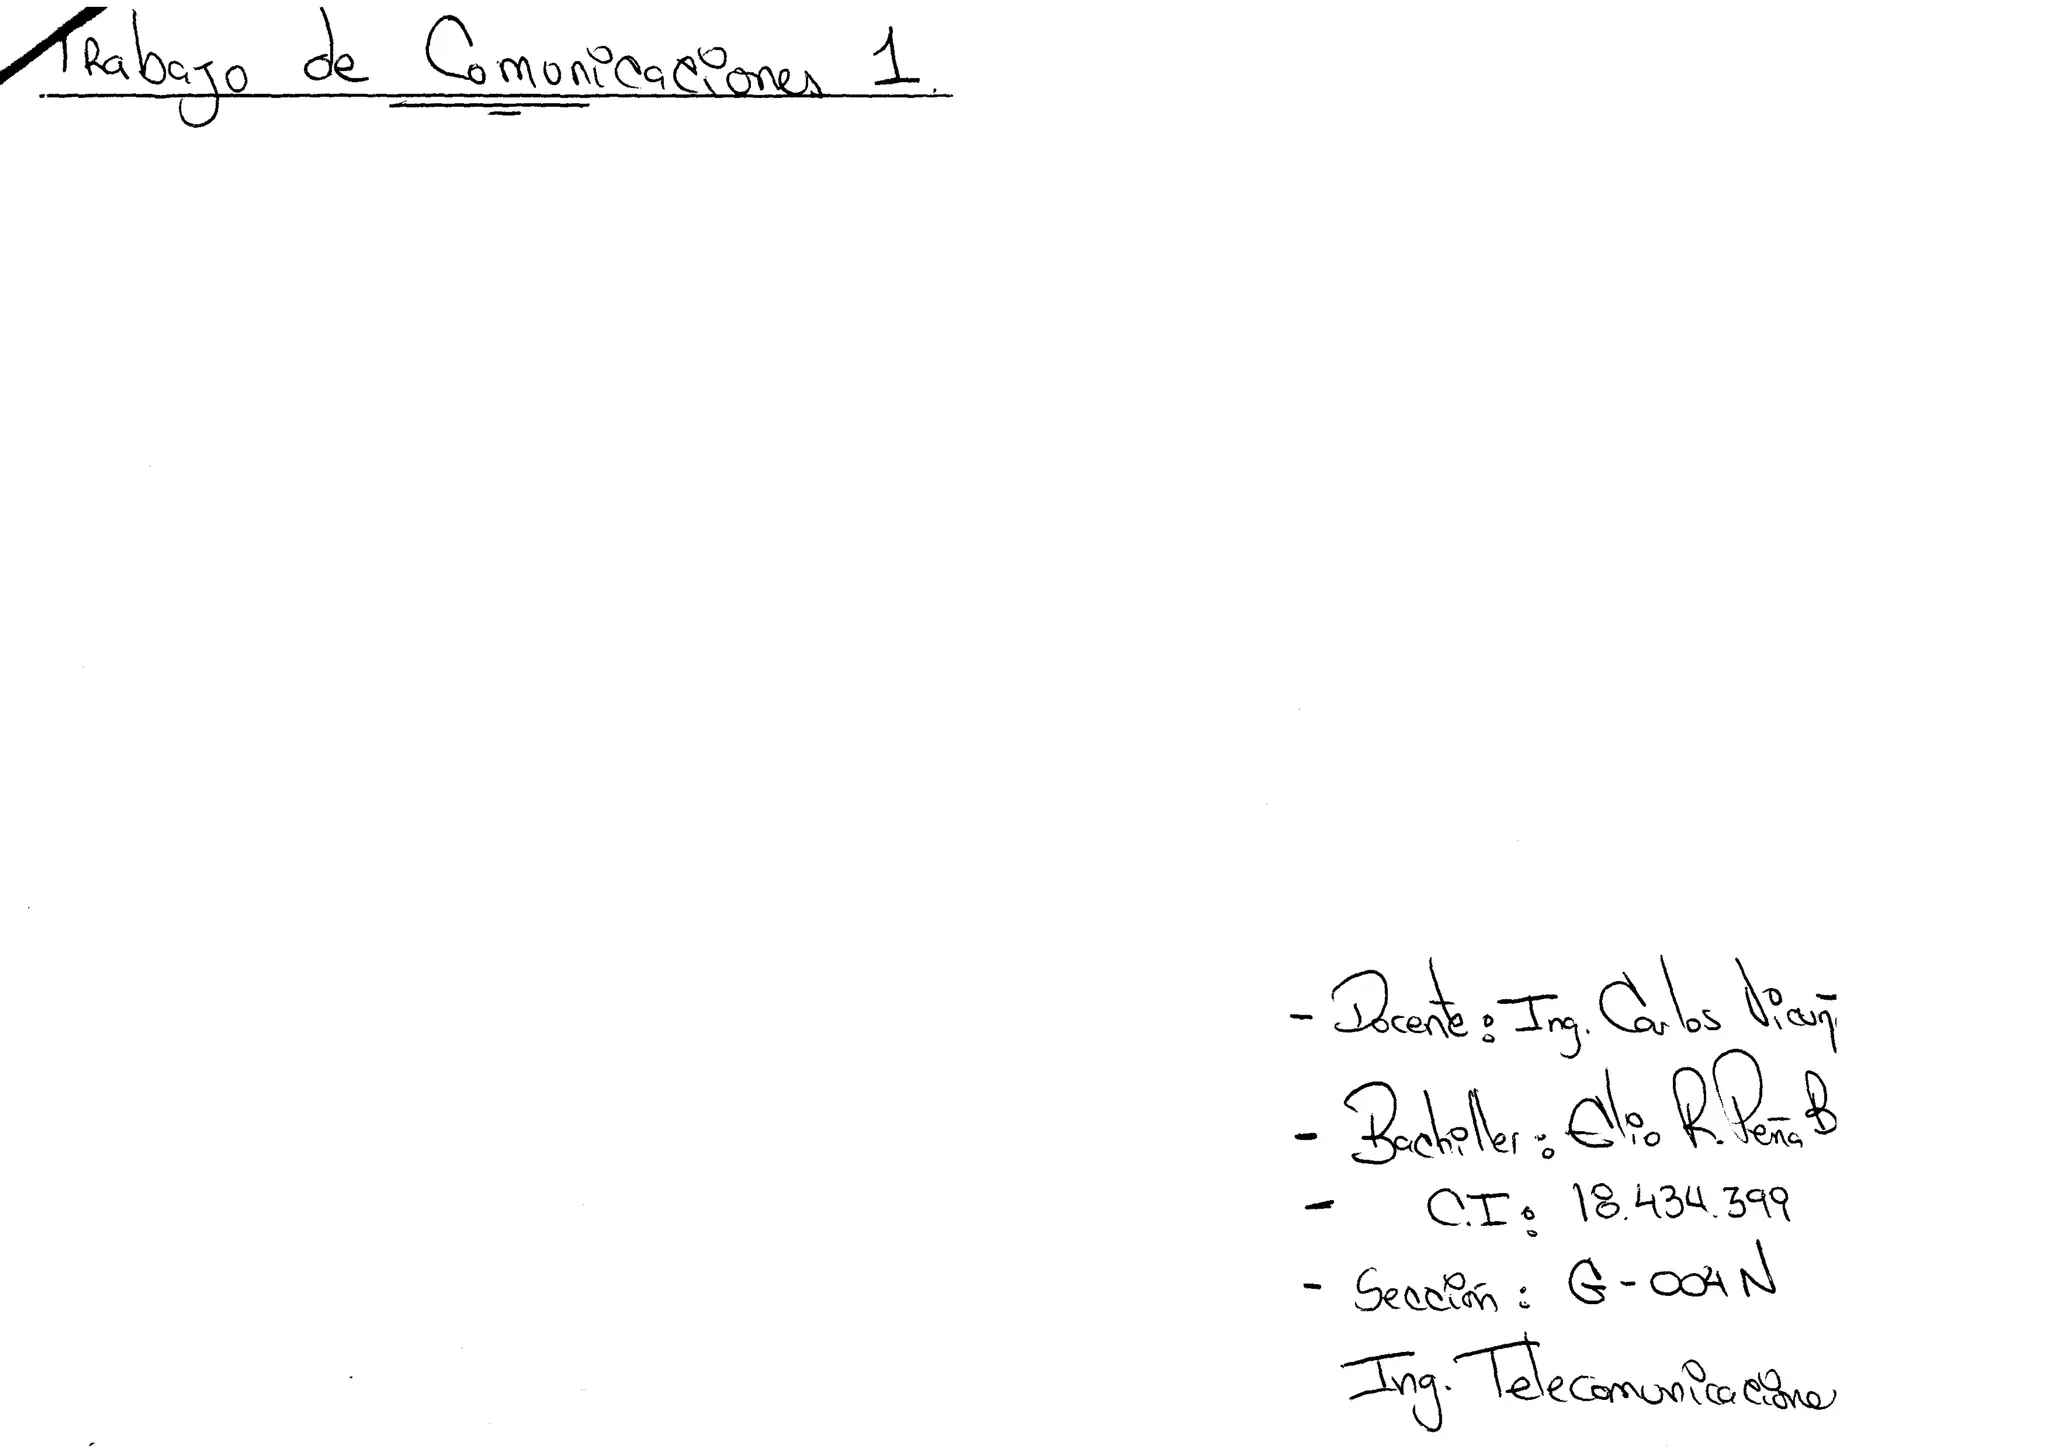 Trabajo de Comunicaciones 1.
- Docente: Ing. Carlos Vicuñ
- Bachiller: Elio R. Peña B
- C.I: 18.434.399
- Sección: G-004N
Ing. Telecomunicacione